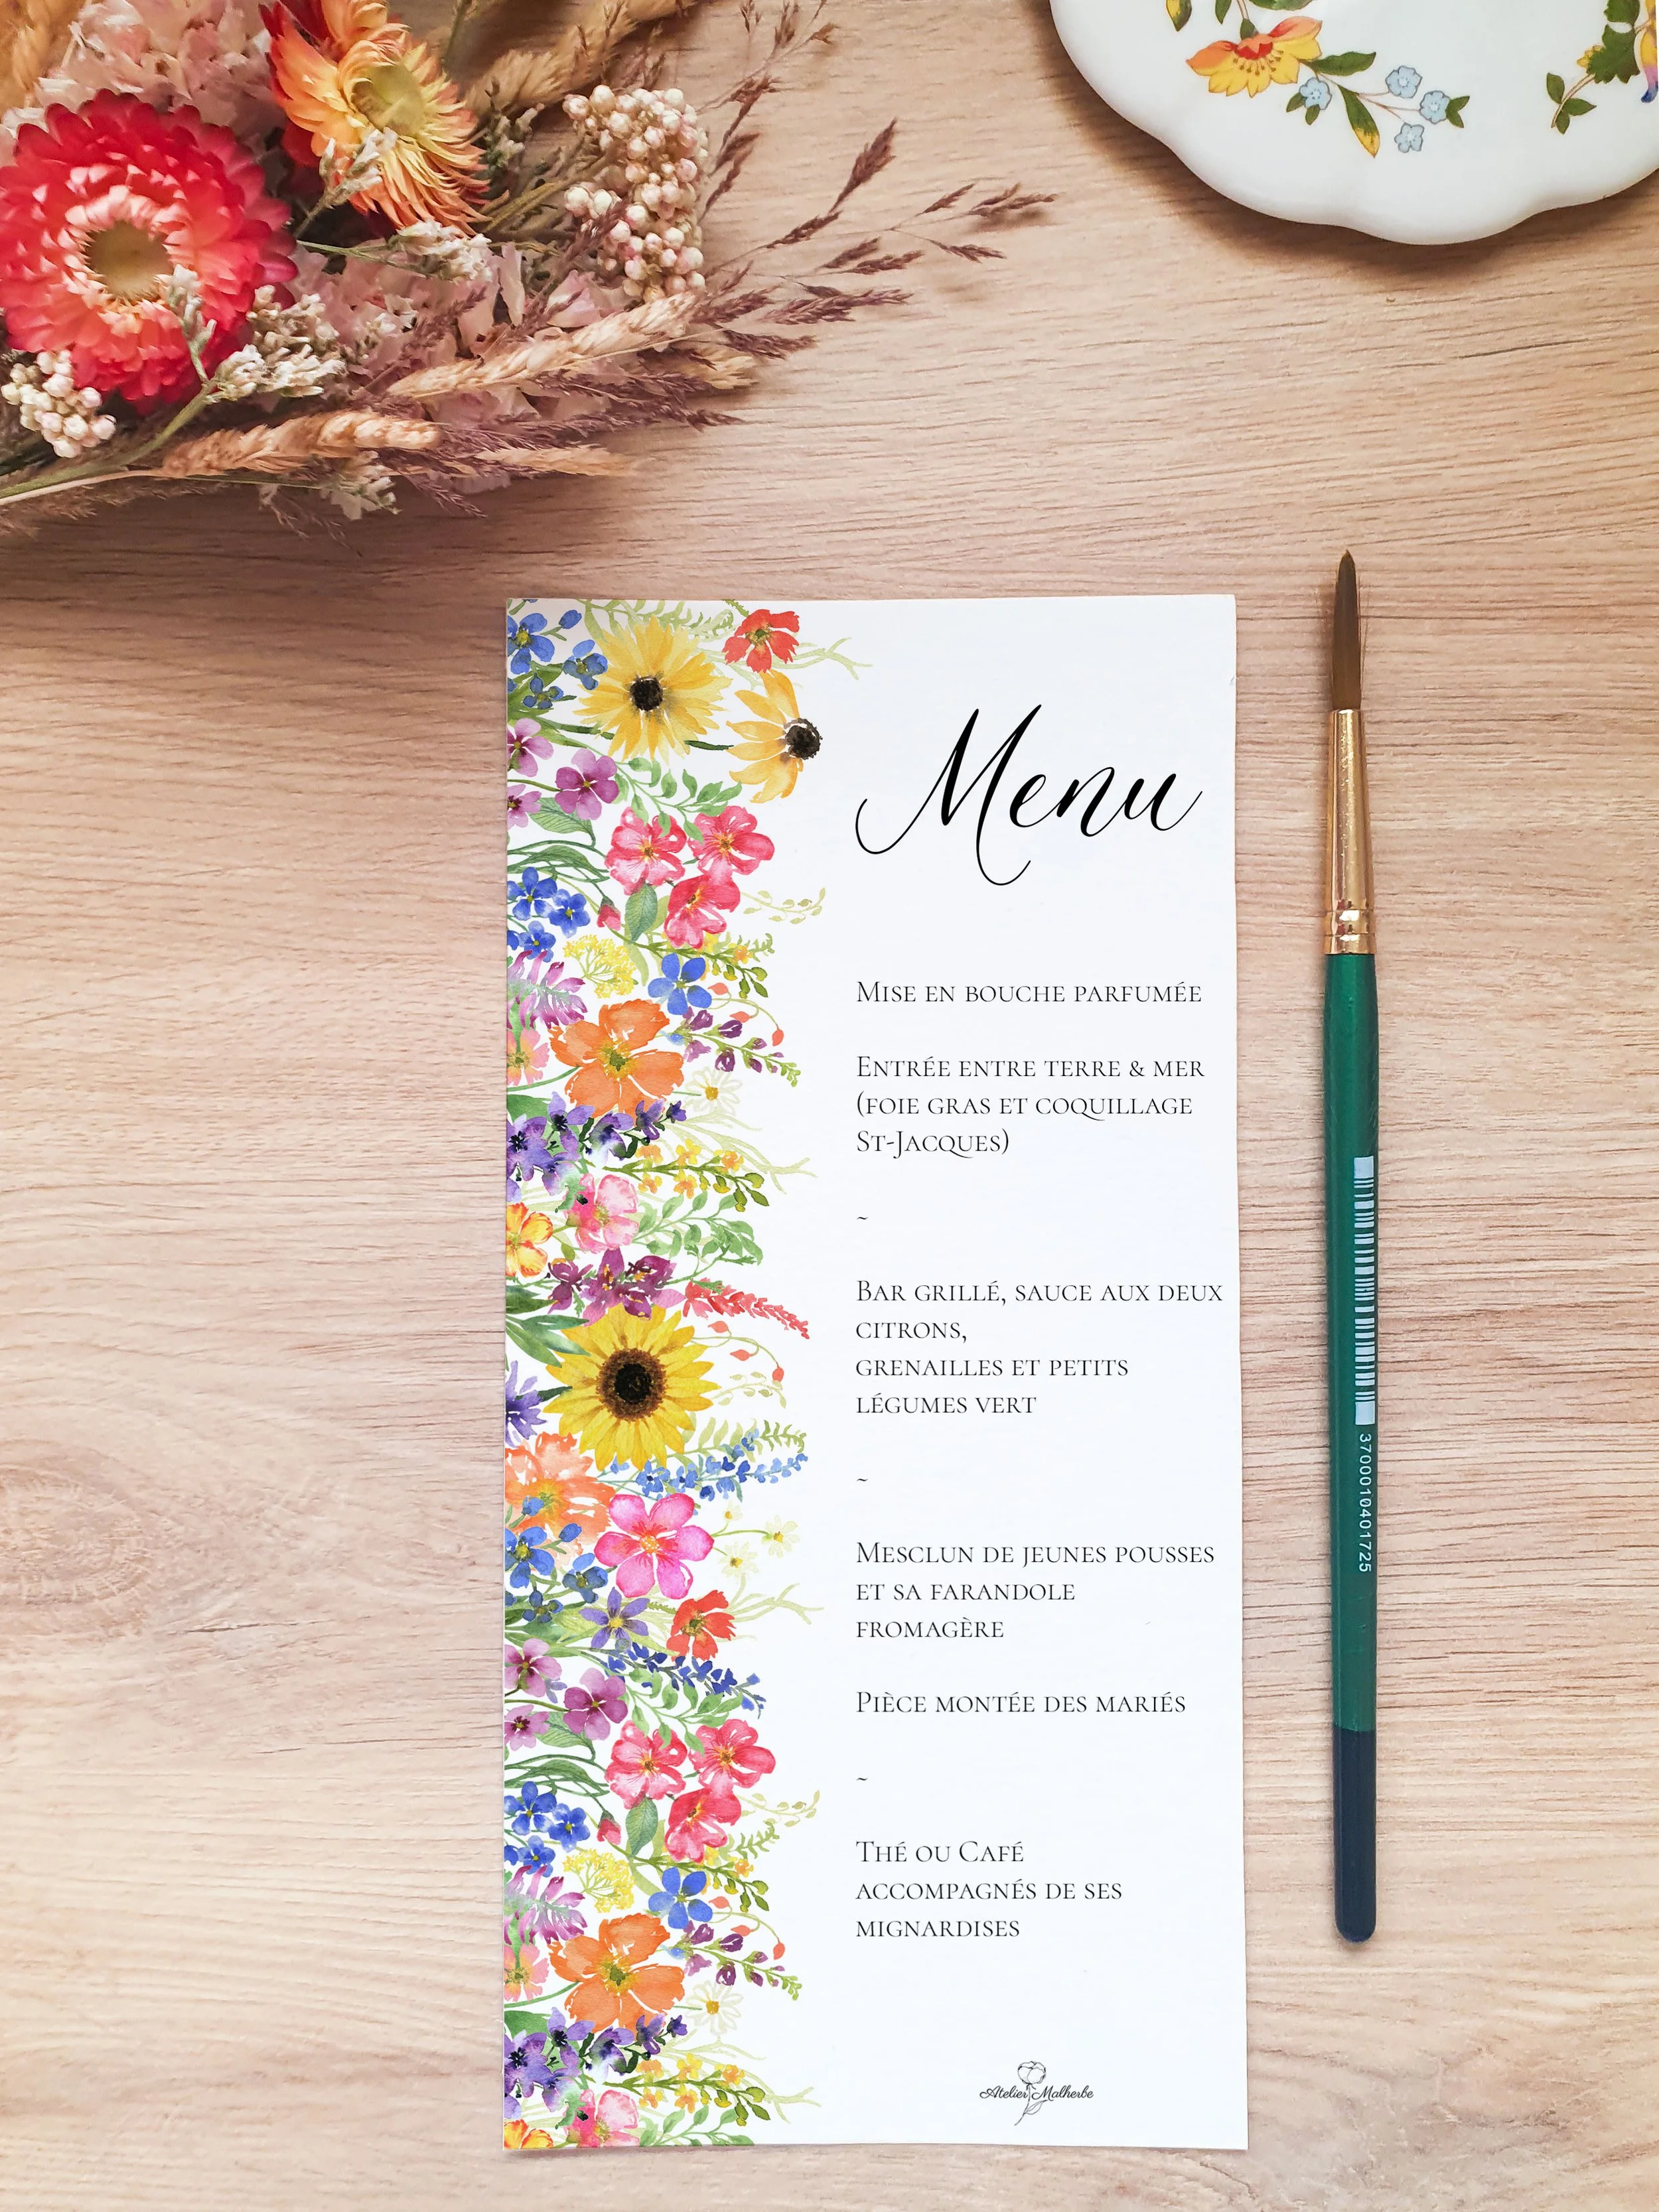 Menu
Mise en bouche parfumée
Entrée entre terre & mer
(foie gras et coquillage
St-Jacques)
~
Bar grillé, sauce aux deux
citrons,
grenailles et petits
légumes vert
~
Mesclun de jeunes pousses
et sa farandole
fromagère
Pièce montée des mariés
~
Thé ou Café
accompagnés de ses
mignardises
Atelier Malherbe
3700010401725